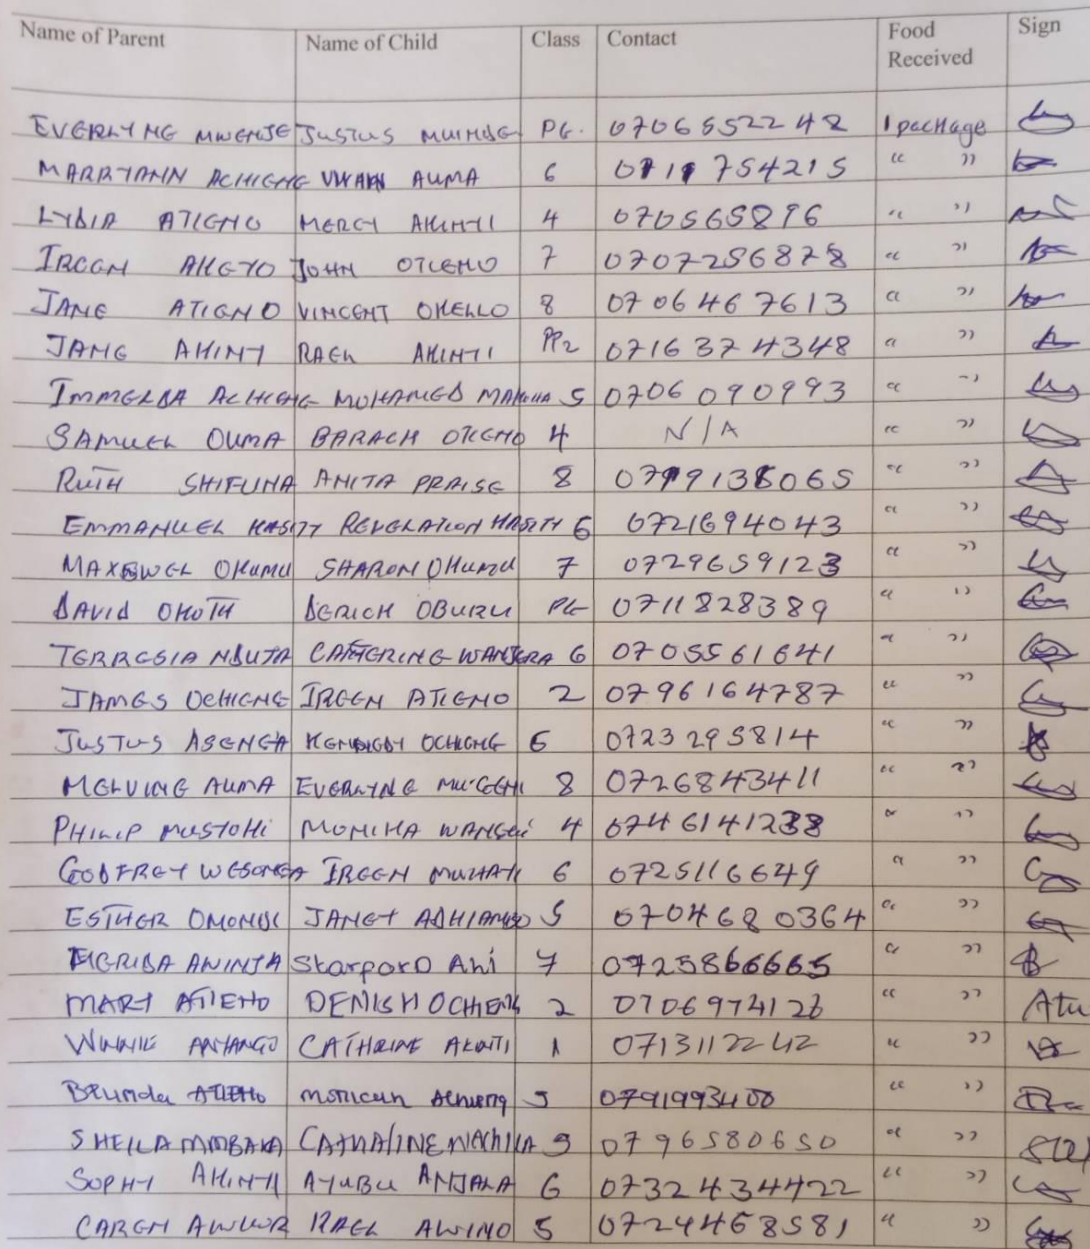 Name of Parent Name of Child Class Contact Food Received Sign
EVERLYNE MWENJE JUSTUS PG. 0706552242 1 package
MARRYANN ACHIENG AUMA 6 0711754215 " "
LYDIA ATIENO MERCY AKINYI 4 070565896 " "
IREEN AKEYO JOHN OTIENO 7 0707256828 " "
JANE ATIENO VINCENT OKELLO 8 0706467613 " "
JANE AKINYI RAEL AKINYI PP2 0716374348 " "
IMMELDA ACHIENG MOHAMED 5 0706090993 " "
SAMUEL OUMA BARACK OTIENO 4 N/A " "
RUTH SHIFUNA ANITA PRAISE 8 " "
EMMANUEL REVELATION 6 0721694043 " "
OKUMU SHARON OKUMU 7 0729659123 " "
DAVID OKOTH DERICK OBURU PG 0711828389 " "
TERRESIA NDUTA CATHERINE WANJERA 6 0705561641 " "
JAMES OCHIENE IREEN ATIENO 2 0796164787 " "
JUSTUS ASENEA OCHIENE 6 0723295814 " "
MELVINE AUMA EVERLYNE 8 0726843411 " "
PHILIP MUSTOHI MONIHA 4 0746141238 " "
GODFREY WESONGA IREEN 6 0725116649 " "
ESTHER JANET ADHIAMBO 5 0704680364 " "
ANINJA 7 0725866665 " "
MARY ATIENO DENISH OCHIENG 2 0706974126 " " Atu
WINNIE ANYANGO CATHRINE AKINYI 1 0713112242 " "
Brunda Atieno Achieng 5 " "
SHEILA MMBAKA 9 0796580650 " "
SOPHY AKINYI AYUBU ANJALA 6 0732434422 " "
CAREN AWUOR RAEL AWINO 5 0724468581 " "